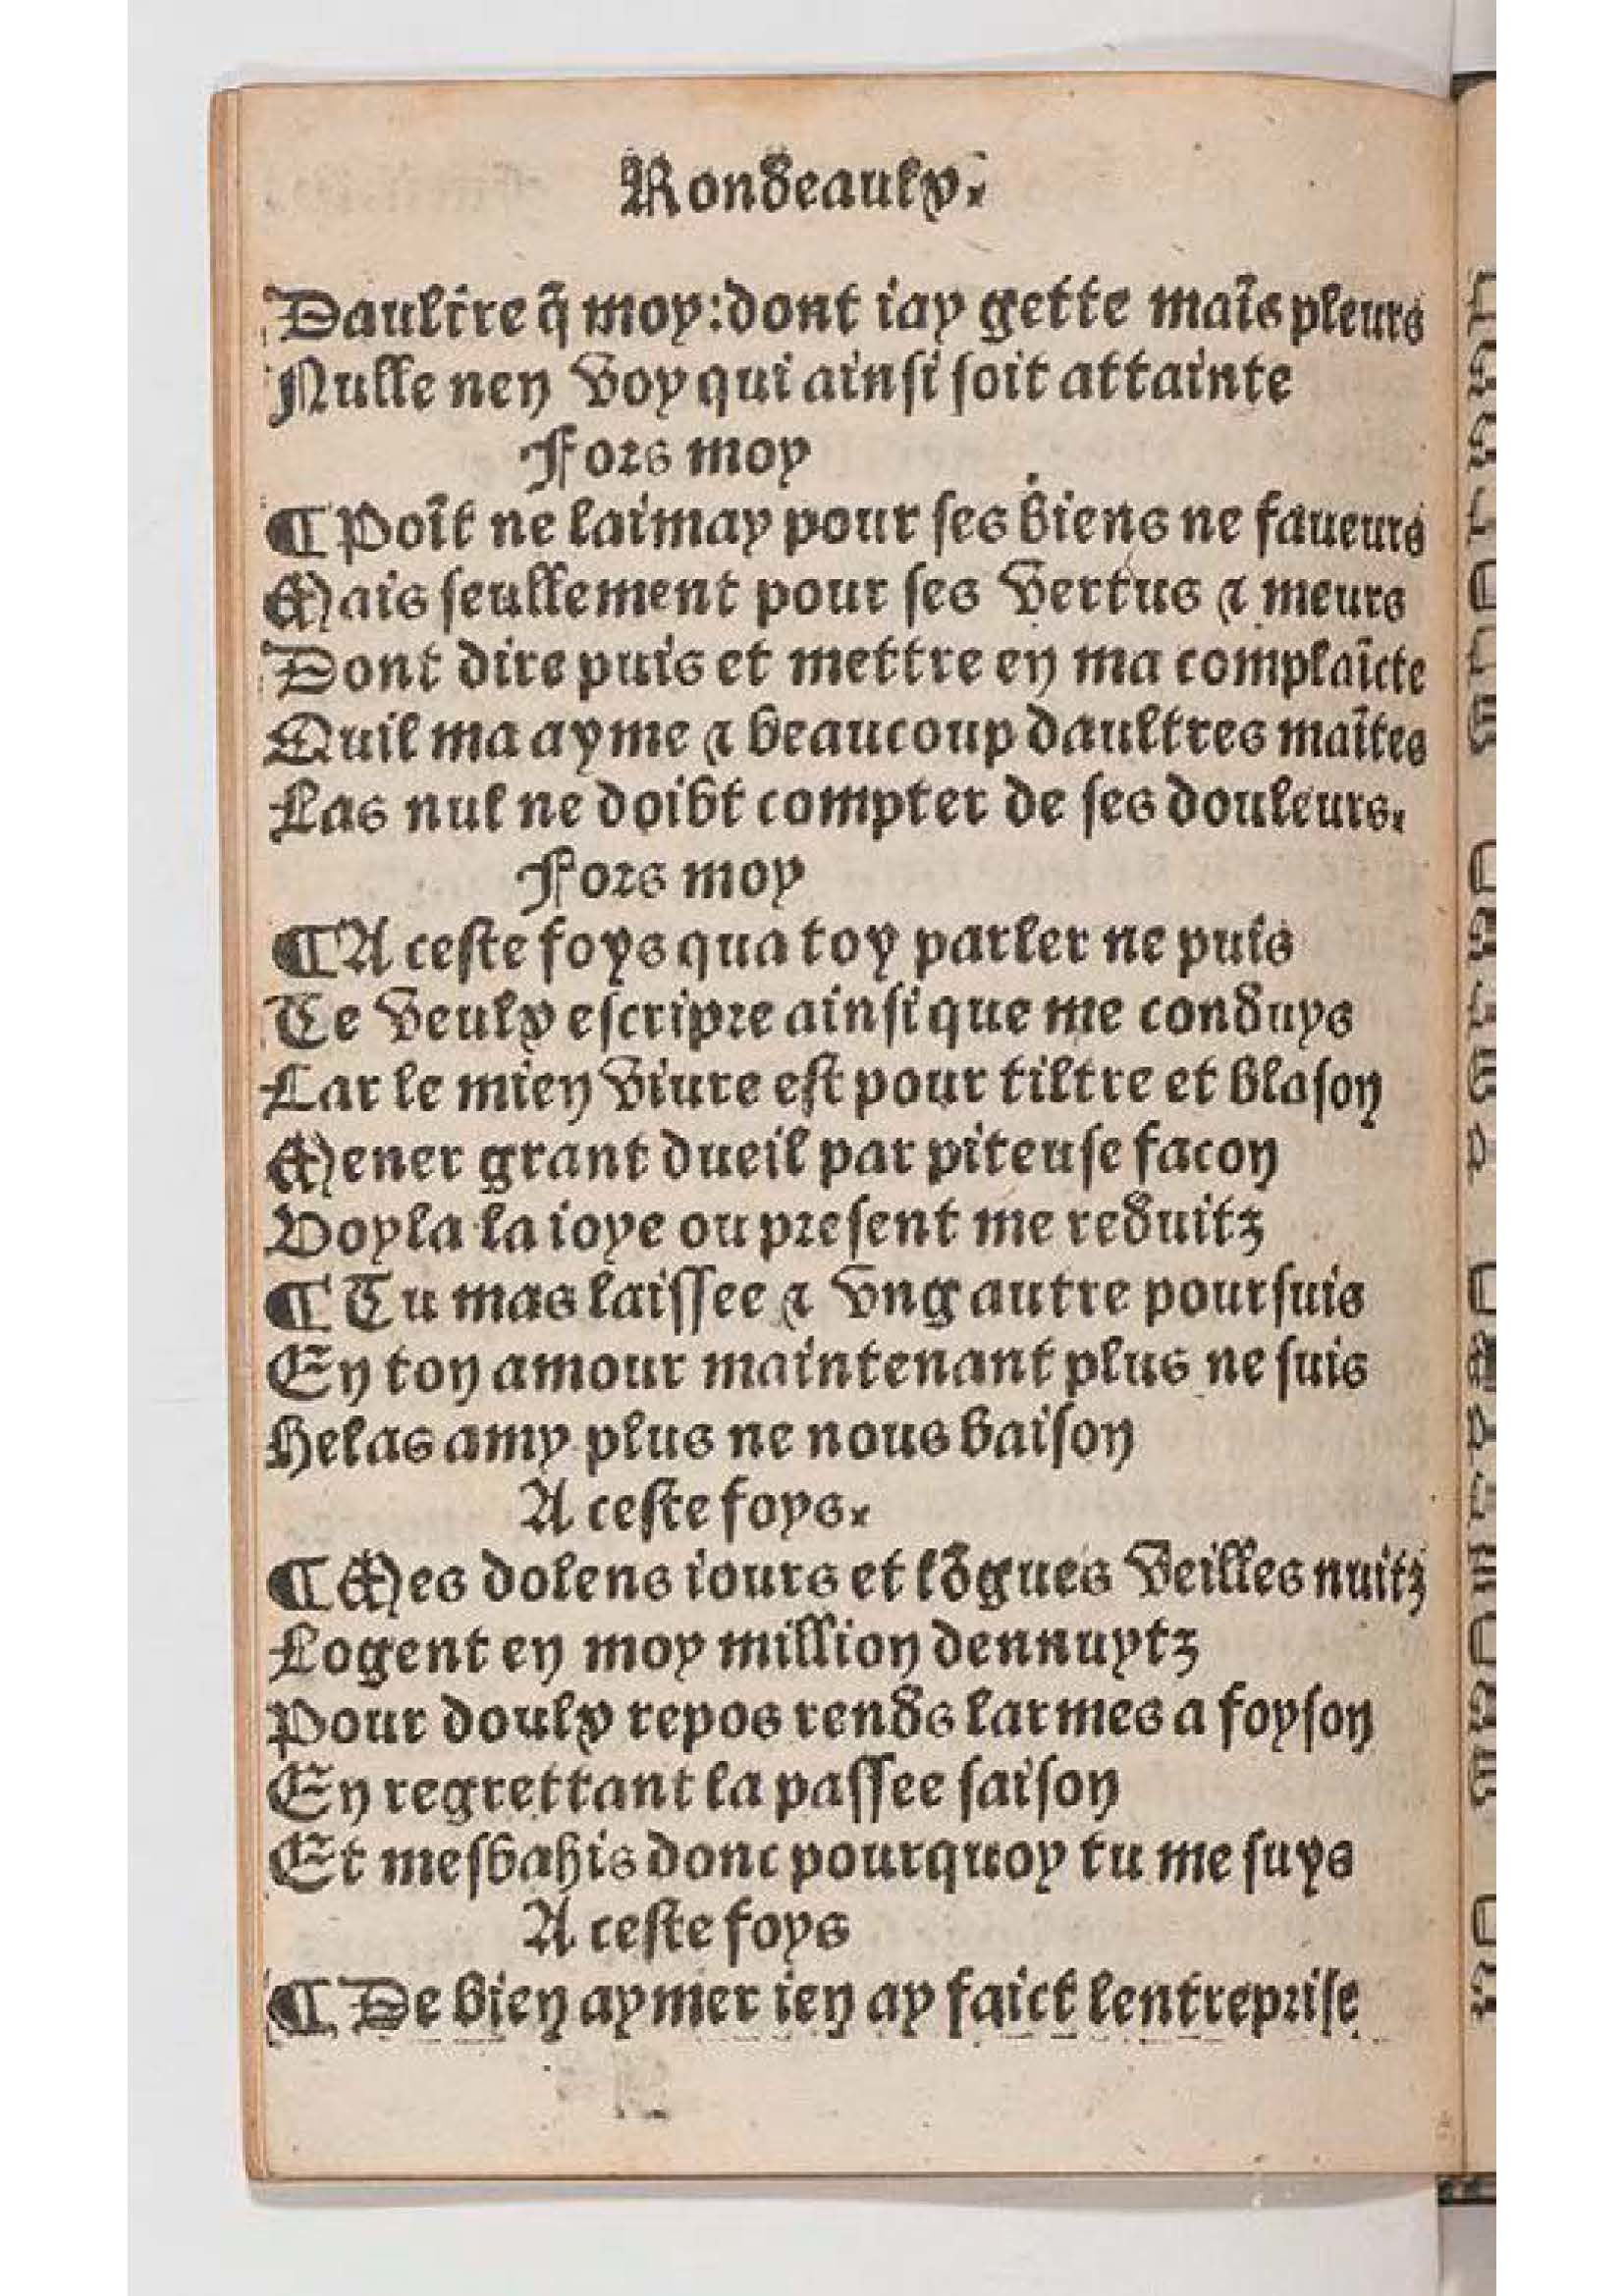 Rondeaulx.
Daultre q̃ moy: dont iay gette maĩs pleurs
Nulle nen voy qui ainsi soit attainte
Fors moy
¶ Poĩt ne laimay pour ses biens ne faueurs
Mais seullement pour ses vertus ⁊ meurs
Dont dire puis et mettre en ma complaĩcte
Quil ma ayme ⁊ beaucoup daultres maĩtes
Las nul ne doibt compter de ses douleurs.
Fors moy
¶ A ceste foys qua toy parler ne puis
Te veulx escripre ainsi que me conduys
Car le mien viure est pour tiltre et blason
Mener grant dueil par piteuse facon
Voyla la ioye ou present me reduitz
¶ Tu mas laissee ⁊ vng autre poursuis
En ton amour maintenant plus ne suis
Helas amy plus ne nous baison
A ceste foys.
¶ Mes dolens iours et lõgues veilles nuitz
Logent en moy million dennuytz
Pour doulx repos rends larmes a foyson
En regrettant la passee saison
Et mesbahis donc pourquoy tu me suys
A ceste foys
¶ De bien aymer ien ay faict lentreprise